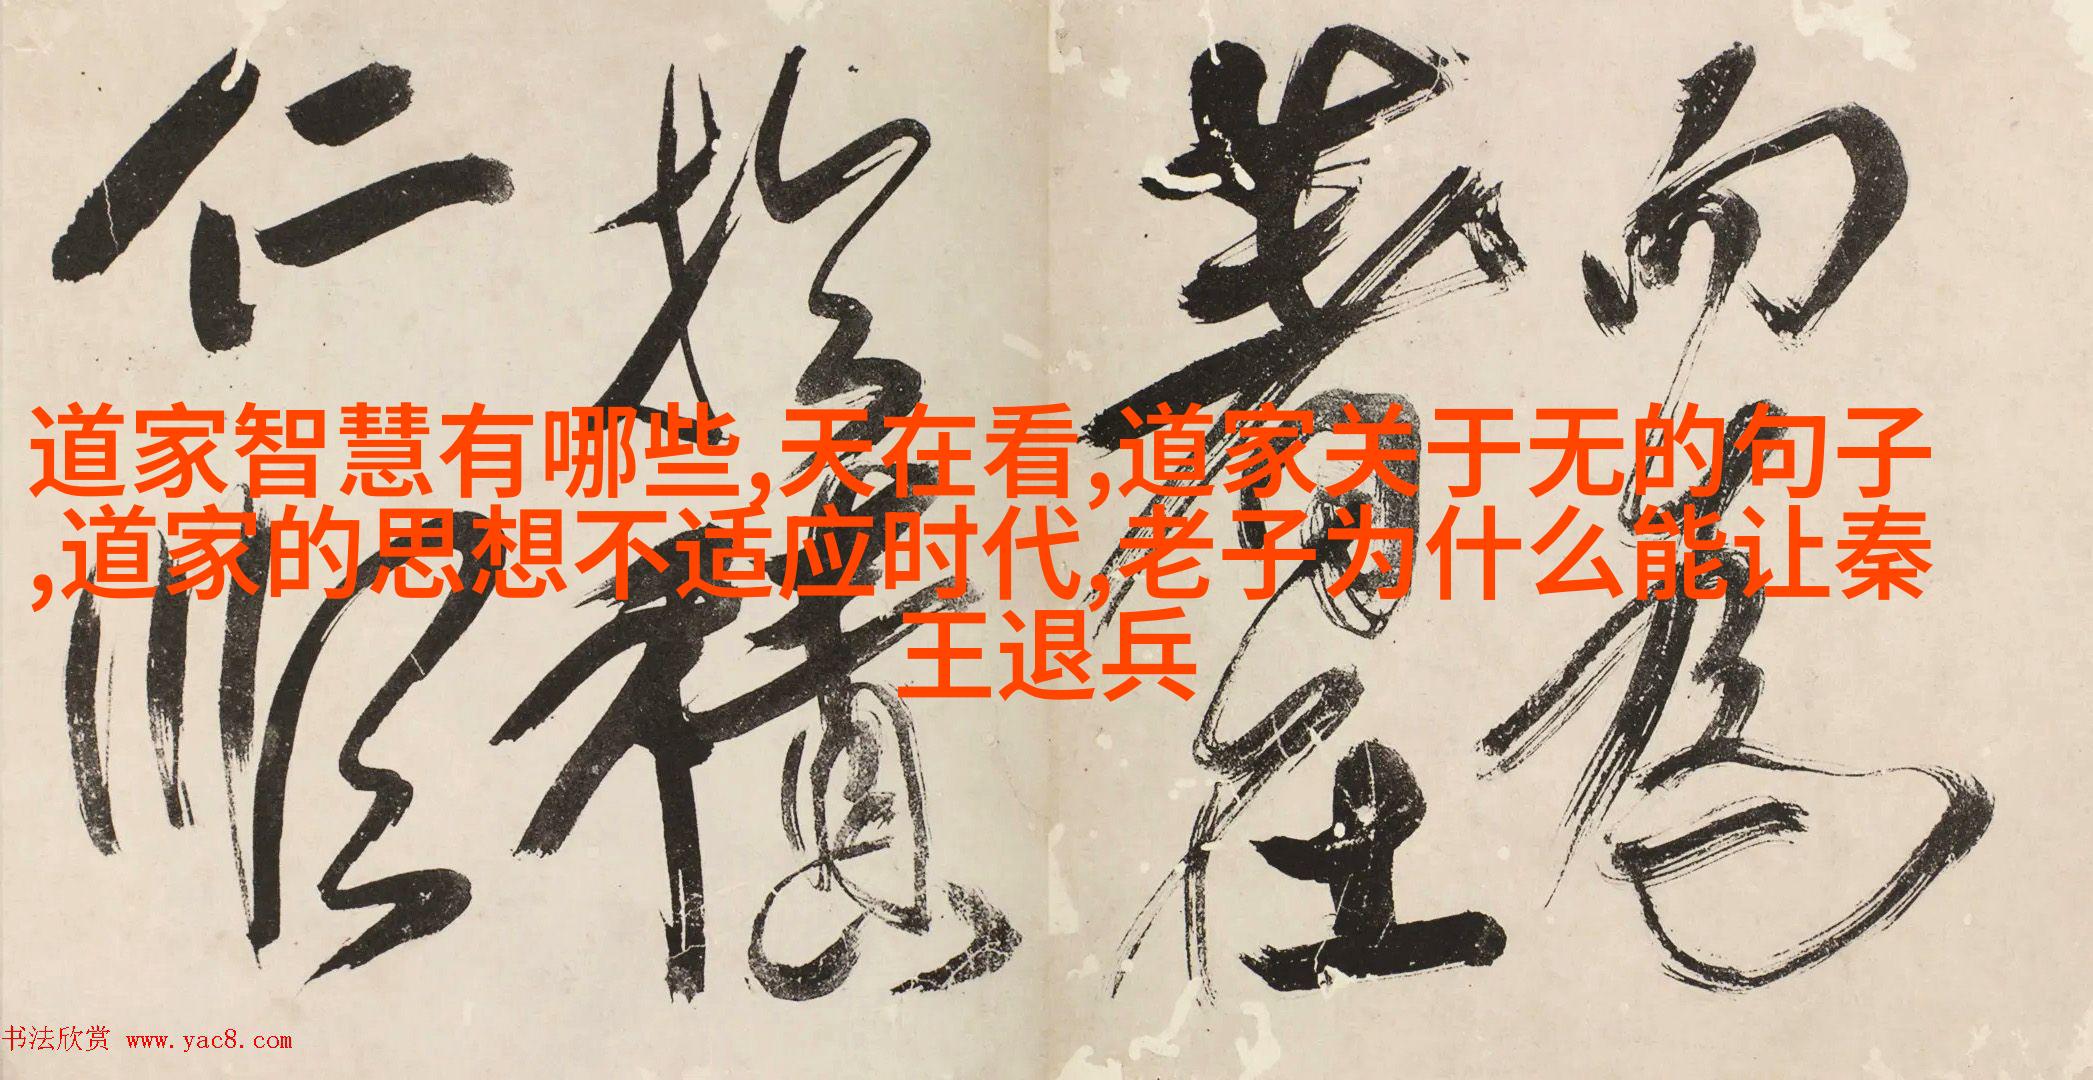 道家智慧有哪些,天在看,道家关于无的句子
,道家的思想不适应时代,老子为什么能让秦
王退兵
仁
順
積
而
书法欣赏 www.yac8.com